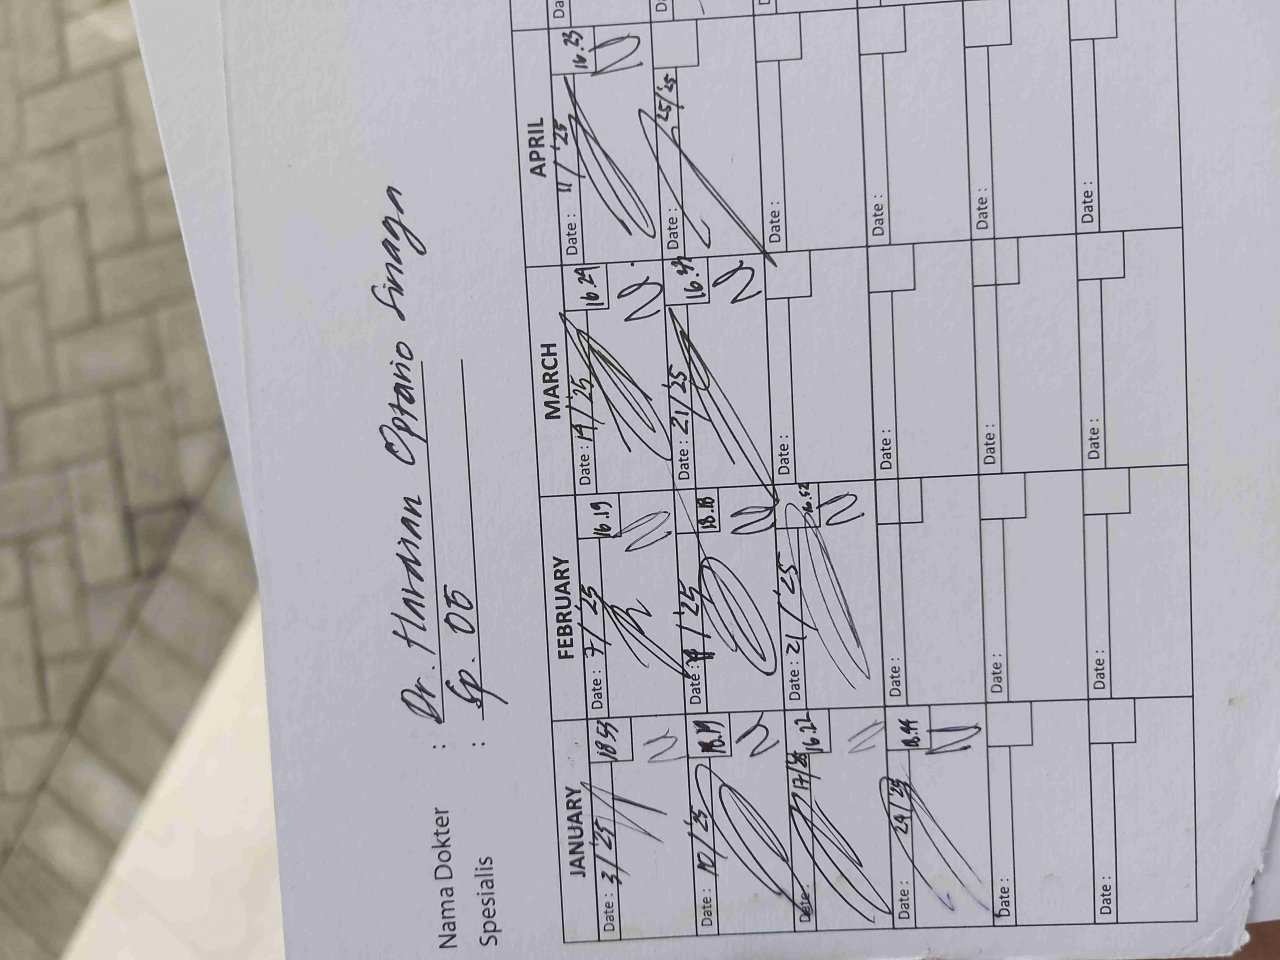 Nama Dokter : Dr. Hardian Optario Sinaga
Spesialis : Sp. OG
JANUARY FEBRUARY MARCH APRIL
Date : 3/'25 18.55 Date : 7/'25 16.19 Date : 14/'25 16.29 Date : 11/'25 16.23
Date : 10/'25 Date : /'25 18.18 Date : 21/'25 Date : 25/'25
Date : 17/'25 16.22 Date : 21/'25 16.52 Date : Date :
Date : 24/'25 18.44 Date : Date : Date :
Date : Date : Date : Date :
Date : Date : Date : Date :